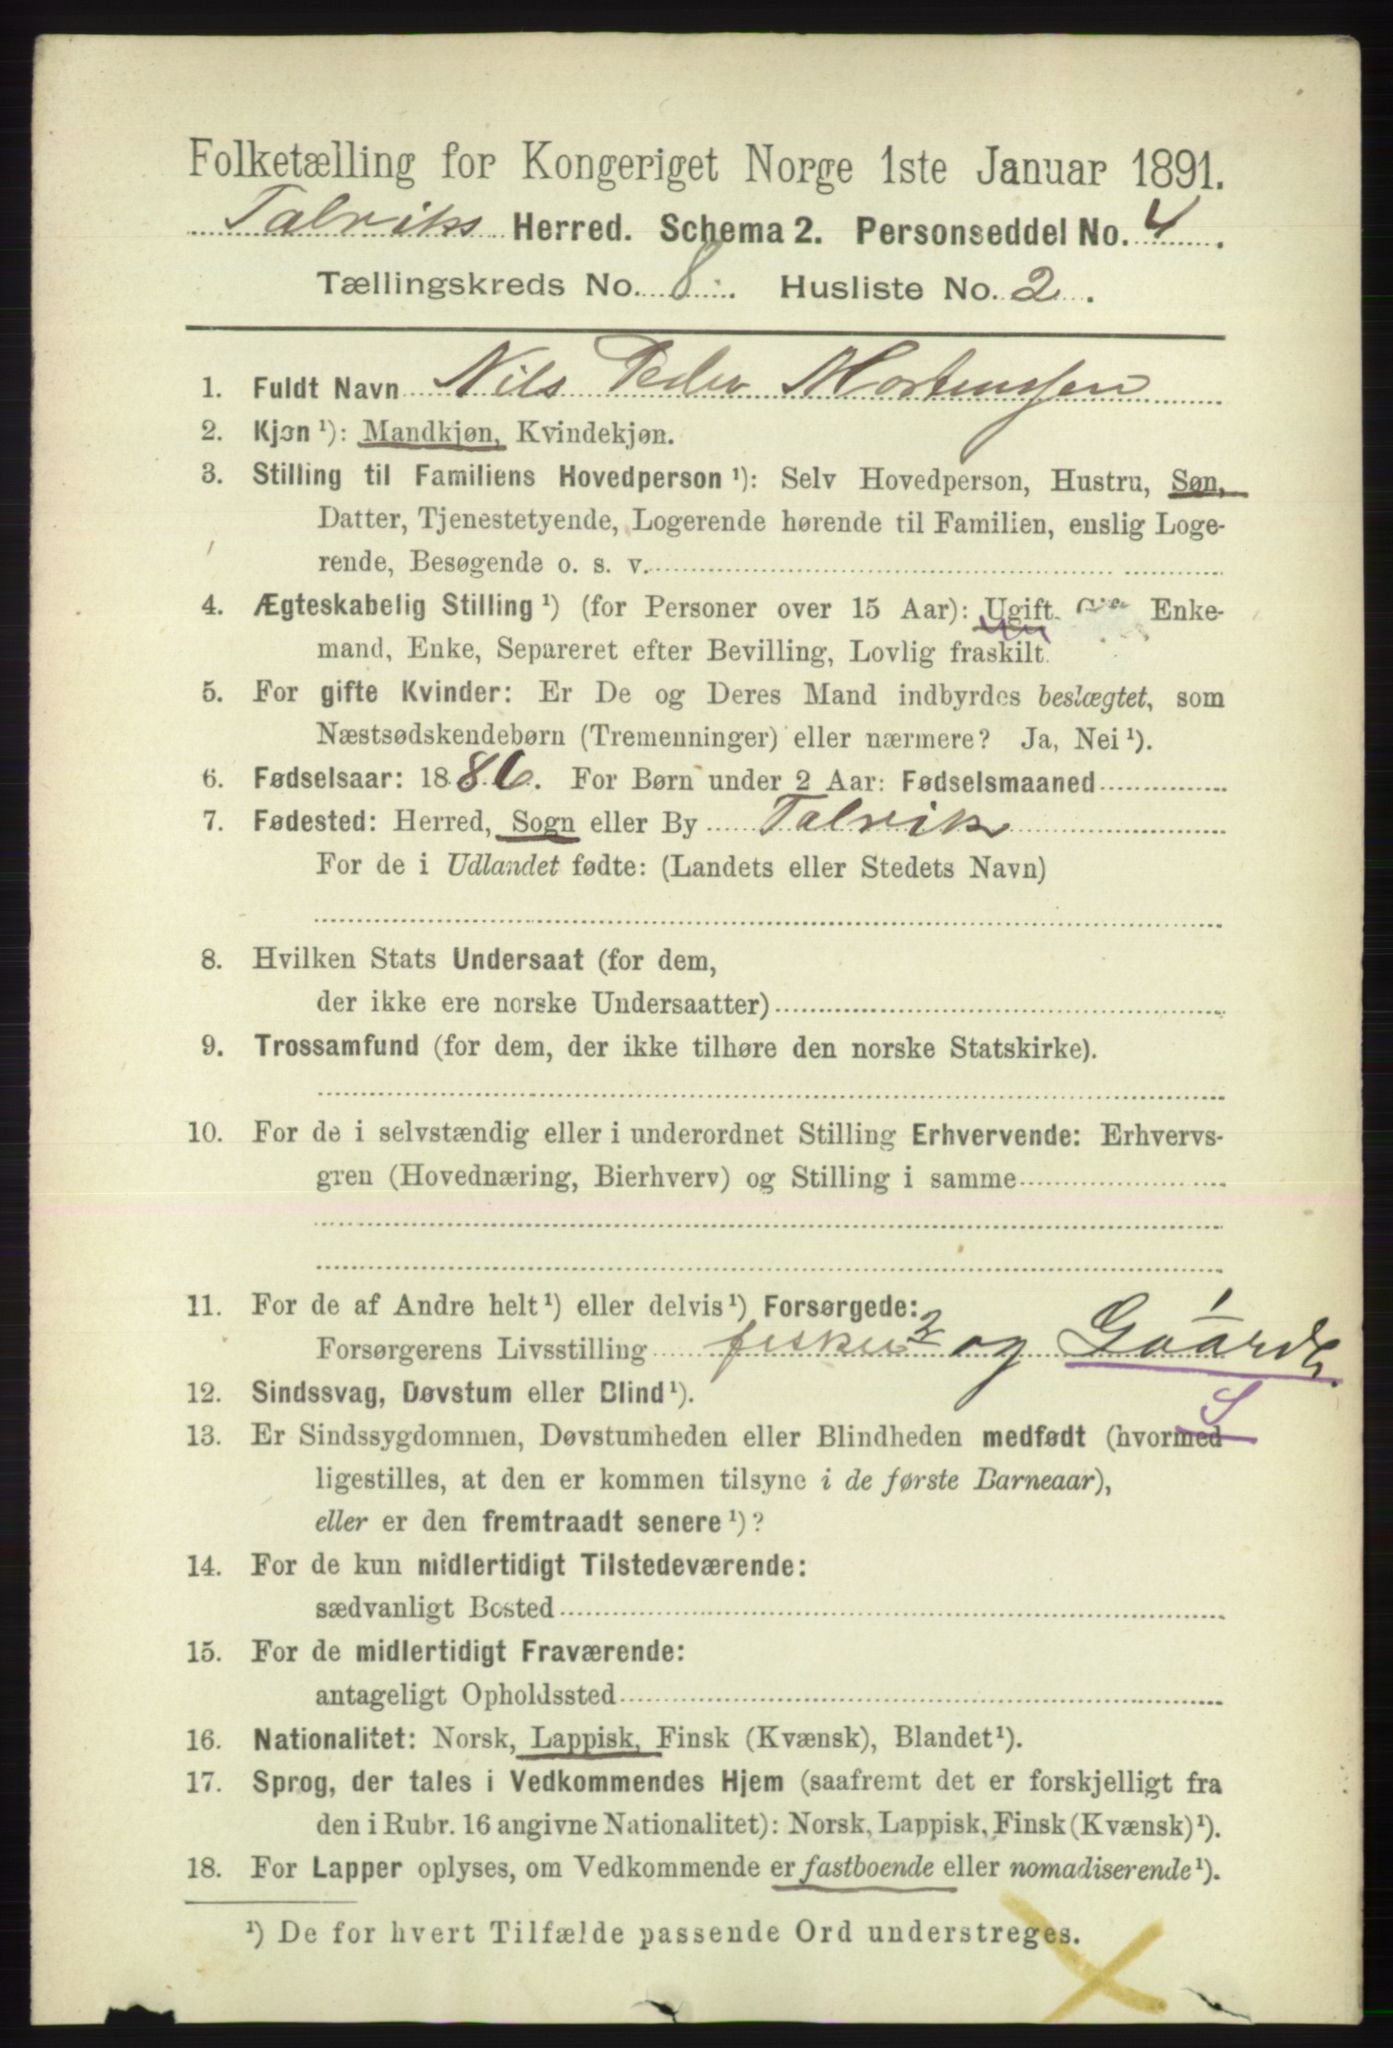 Folketælling for Kongeriget Norge 1ste Januar 1891.
Talviks Herred. Schema 2. Personseddel No. 4.
Tællingskreds No. 8. Husliste No. 2.
1. Fuldt Navn Nils Peder Mortensen
2. Kjøn ¹): Mandkjøn, Kvindekjøn.
3. Stilling til Familiens Hovedperson ¹): Selv Hovedperson, Hustru, Søn,
Datter, Tjenestetyende, Logerende hørende til Familien, enslig Loge-
rende, Besøgende o. s. v.
4. Ægteskabelig Stilling ¹) (for Personer over 15 Aar): Ugift, Enke-
mand, Enke, Separeret efter Bevilling, Lovlig fraskilt.
5. For gifte Kvinder: Er De og Deres Mand indbyrdes beslægtet, som
Næstsødskendebørn (Tremenninger) eller nærmere? Ja, Nei ¹).
6. Fødselsaar: 1886. For Børn under 2 Aar: Fødselsmaaned
7. Fødested: Herred, Sogn eller By Talvik
For de i Udlandet fødte: (Landets eller Stedets Navn)
8. Hvilken Stats Undersaat (for dem,
der ikke ere norske Undersaatter)
9. Trossamfund (for dem, der ikke tilhøre den norske Statskirke).
10. For de i selvstændig eller i underordnet Stilling Erhvervende: Erhvervs-
gren (Hovednæring, Bierhverv) og Stilling i samme
11. For de af Andre helt ¹) eller delvis ¹) Forsørgede:
1
Forsørgerens Livsstilling fisker 2 og Gaardb.
12. Sindssvag, Døvstum eller Blind ¹).
S
13. Er Sindssygdommen, Døvstumheden eller Blindheden medfødt (hvormed
ligestilles, at den er kommen tilsyne i de første Barneaar),
eller er den fremtraadt senere ¹)?
14. For de kun midlertidigt Tilstedeværende:
sædvanligt Bosted
15. For de midlertidigt Fraværende:
antageligt Opholdssted
16. Nationalitet: Norsk, Lappisk, Finsk (Kvænsk), Blandet ¹).
17. Sprog, der tales i Vedkommendes Hjem (saafremt det er forskjelligt fra
den i Rubr. 16 angivne Nationalitet): Norsk, Lappisk, Finsk (Kvænsk) ¹).
18. For Lapper oplyses, om Vedkommende er fastboende eller nomadiserende ¹).
¹) De for hvert Tilfælde passende Ord understreges.